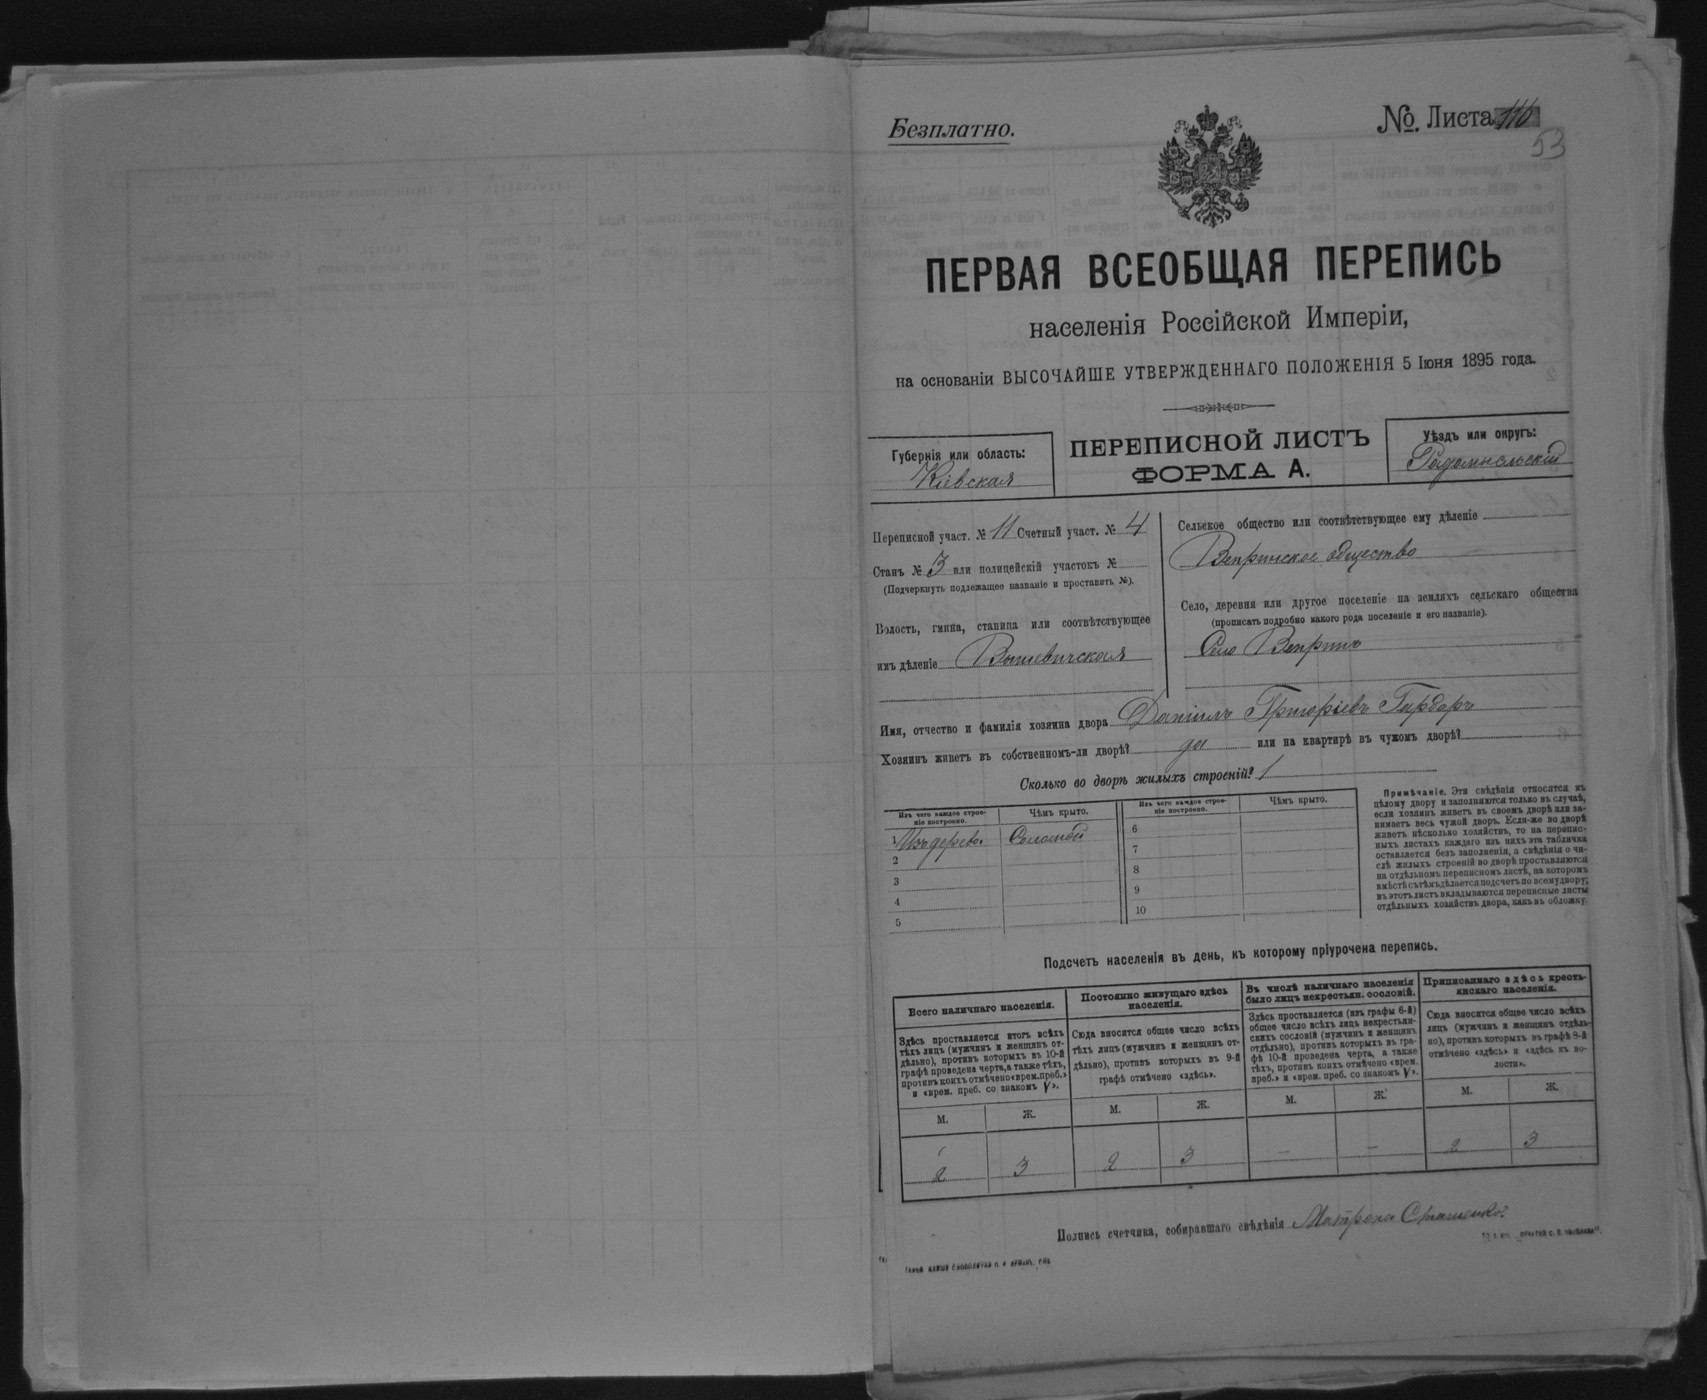 Безплатно.
№. Листа 116
53
ПЕРВАЯ ВСЕОБЩАЯ ПЕРЕПИСЬ
населенія Россійской Имперіи,
на основаніи ВЫСОЧАЙШЕ УТВЕРЖДЕННАГО ПОЛОЖЕНІЯ 5 Іюня 1895 года.
Губернія или область:
Кіевская
ПЕРЕПИСНОЙ ЛИСТЪ
ФОРМА А.
Уѣздъ или округъ:
Радомысльскій
Переписной участ. № 11 Счетный участ. № 4
Станъ № 3 или полицейскій участокъ №
(Подчеркнуть подлежащее названіе и проставить №).
Волость, гмина, станица или соотвѣтствующее
имъ дѣленіе Вышевичская
Сельское общество или соотвѣтствующее ему дѣленіе
Вепринское общество
Село, деревня или другое поселеніе на земляхъ сельскаго общества
(прописать подробно какого рода поселеніе и его названіе).
Село Вепринъ
Имя, отчество и фамилія хозяина двора Даніилъ Григоріевъ Гарбаръ
Хозяинъ живетъ въ собственномъ-ли дворѣ? да или на квартирѣ въ чужомъ дворѣ?
Сколько во дворѣ жилыхъ строеній? 1
Изъ чего каждое строеніе построено.
Чѣмъ крыто.
Изъ чего каждое строеніе построено.
Чѣмъ крыто.
1 Изъ дерева Соломой
2
3
4
5
6
7
8
9
10
Примѣчаніе. Эти свѣдѣнія относятся къ
цѣлому двору и заполняются только въ случаѣ,
если хозяинъ живетъ въ своемъ дворѣ или за-
нимаетъ весь чужой дворъ. Если-же во дворѣ
живетъ нѣсколько хозяйствъ, то на перепис-
ныхъ листахъ каждаго изъ нихъ эта табличка
оставляется безъ заполненія, а свѣдѣнія о чи-
слѣ жилыхъ строеній во дворѣ проставляются
на отдѣльномъ переписномъ листѣ, на которомъ
вмѣстѣ съ тѣмъ дѣлается подсчетъ по всему двору;
въ этотъ листъ вкладываются переписные листы
отдѣльныхъ хозяйствъ двора, какъ въ обложку.
Подсчетъ населенія въ день, къ которому пріурочена перепись.
Всего наличнаго населенія.
Здѣсь проставляется итогъ всѣхъ
тѣхъ лицъ (мужчинъ и женщинъ от-
дѣльно), противъ которыхъ въ 10-й
графѣ проведена черта, а также тѣхъ,
противъ коихъ отмѣчено «врем. преб.»
и «врем. преб. со знакомъ V».
Постоянно живущаго здѣсь
населенія.
Сюда вносится общее число всѣхъ
тѣхъ лицъ (мужчинъ и женщинъ от-
дѣльно), противъ которыхъ въ 9-й
графѣ отмѣчено «здѣсь».
Въ числѣ наличнаго населенія
было лицъ некрестьян. сословій.
Здѣсь проставляется (изъ графы 6-й)
общее число всѣхъ лицъ некрестьян-
скихъ сословій (мужчинъ и женщинъ
отдѣльно), противъ которыхъ въ гра-
фѣ 10-й проведена черта, а также
тѣхъ, противъ коихъ отмѣчено «врем.
преб.» и «врем. преб. со знакомъ V».
Приписаннаго здѣсь кресть-
янскаго населенія.
Сюда вносится общее число всѣхъ
лицъ (мужчинъ и женщинъ отдѣль-
но), противъ которыхъ въ графѣ 8-й
отмѣчено «здѣсь» и «здѣсь къ во-
лости».
М. Ж. М. Ж. М. Ж. М. Ж.
2 3 2 3 — — 2 3
Подпись счетчика, собиравшаго свѣдѣнія